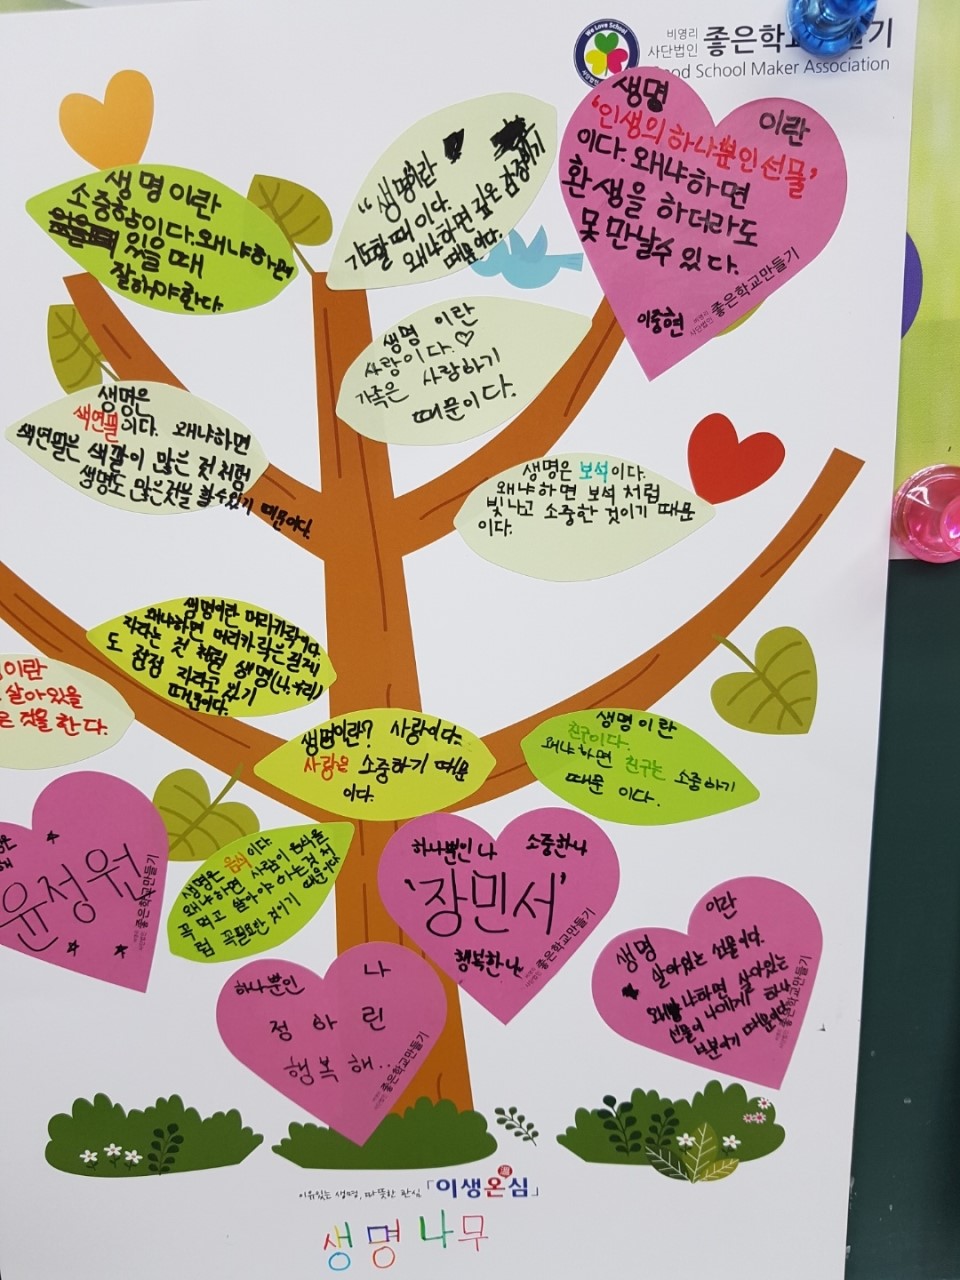 We Love School
비영리
사단법인
좋은학 기
ood School Maker Association
생명 이란
'인생의 하나뿐인 선물'
이다. 왜냐하면
환생을 하더라도
못 만날수 있다.
이중현
비영리
사단법인 좋은학교만들기
생명이란
"
가할 때이다.
왜냐하면 깊은 감정이기
때문이다.
생명이란
소중함이다.왜냐하면
있을 때
잘해야한다
생명 이란
사랑이다.♡
가족은 사랑하기
때문이다.
생명은
색연필이다. 왜냐하면
색연필은 색깔이 많은 것 처럼
생명도 많은것을 할수있기 때문이다.
생명은 보석이다.
왜냐하면 보석 처럼
빛나고 소중한 것이기 때문
이다.
생명이란 머리카락이다.
왜냐하면 머리카락은 길게
자라는 것 처럼 생명(나,우리)
도 점점 자라고 있기
때문이다.
이란
살아있을
은 것을 한다.
생명이란? 사랑이다.
사랑은 소중하기 때문
이다.
생명이란
친구이다.
왜냐하면 친구는 소중하기
때문 이다.
윤정원
좋은학교만들기
생명은 음식이다.
왜냐하면 사람이 음식을
꼭 먹고 살아야 하는것 처
럼 꼭필요한 것이기
때문이다
하나뿐인 나 소중한나
'장민서'
행복한 나
좋은학교만들기
하나뿐인 나
정 아 린
행복해..
좋은학교만들기
생명 이란
살아있는 선물이다.
왜냐하면 살아있는
선물이 나에게 하나
뿐이기 때문이다
좋은학교만들기
이유있는 생명, 따뜻한 관심 「이생온심」
생명나무